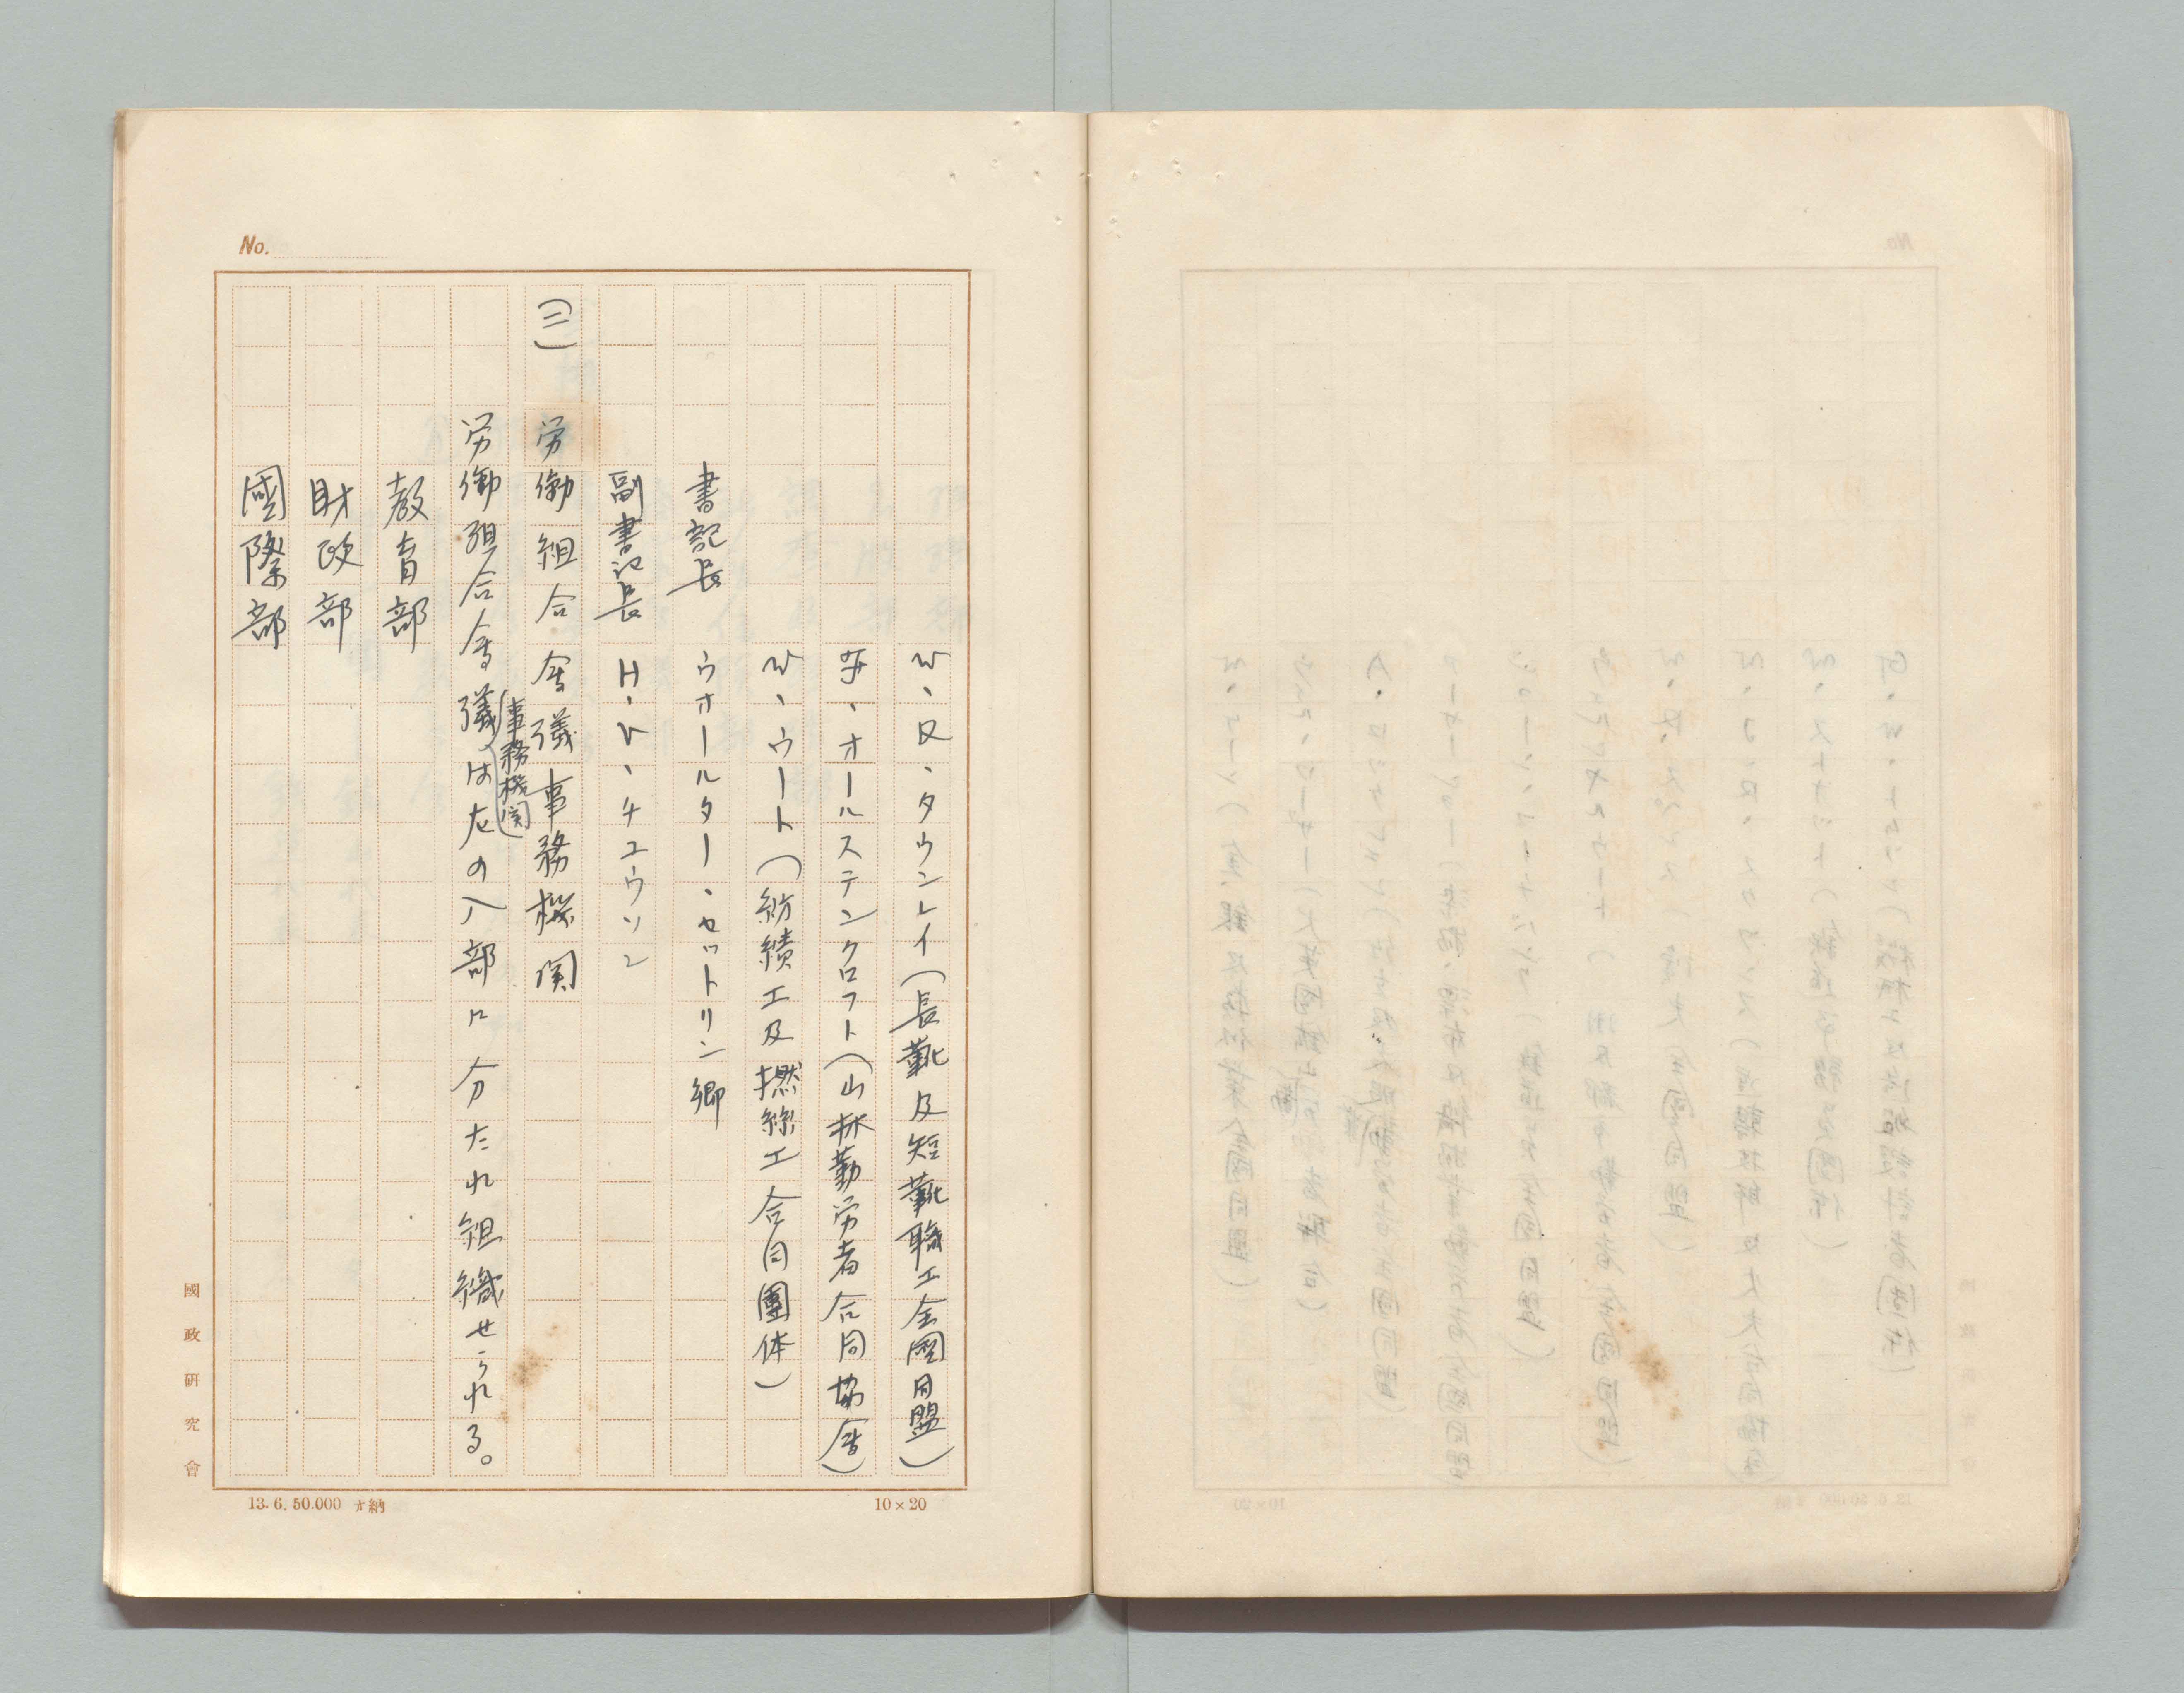 No.
W、R、タウンレイ(長靴及短靴職工全國同盟)
J、オールステンクロフト(山林勤労者合同協会)
W、ウート(紡績工及撚絲工合同團体)
書記長　ウオールター、セットリン卿
副書記長　H、V、チユウソン
(三)　労働組合会議事務機関
労働組合会議(事務機関)は左の八部に分たれ組織せられる。
教育部
財政部
國際部
國政研究會
13.6.50.000 納
10×20